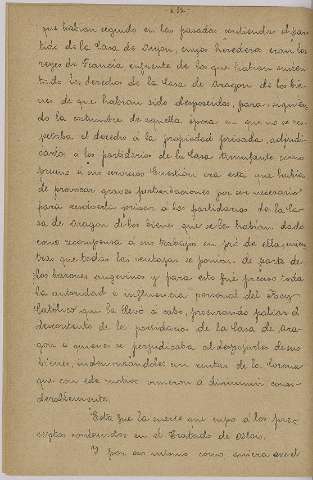 que habian seguido en las pasadas contiendas el par-
tido de la Casa de Anjou, cuyos herederos eran los
reyes de Francia enfrente de los que habian susten-
tado los derechos de la Casa de Aragon de los bie-
nes de que habian sido desposeidos, para siguien-
do la costumbre de aquella época en que no se res-
petaba el derecho á la propiedad privada, adjudi-
carlos a los partidarios de la Casa triunfante como
premio a sus servicios. Cuestion era esta que habia
de provocar graves perturbaciones por ser necesario
para resolverla privar a los partidarios de la Ca-
sa de Aragon de los bienes que se les habian dado
como recompensa a sus trabajos en pró de ella, mien-
tras que todas las ventajas se ponian de parte de
los barones angevinos y para esto fué preciso toda
la autoridad e influencia personal del Rey
Católico que la llevó a cabo, procurando paliar el
descontento de los partidarios de la Casa de Ara-
gon a quienes se perjudicaba al despojarles de sus
bienes, indemnizándoles con rentas de la Corona
que con este motivo vinieron a disminuir consi-
derablemente.
Esta fue la suerte que cupo á los pre-
ceptos contenidos en el Tratado de Blois.
Y por eso mismo como quiera que el